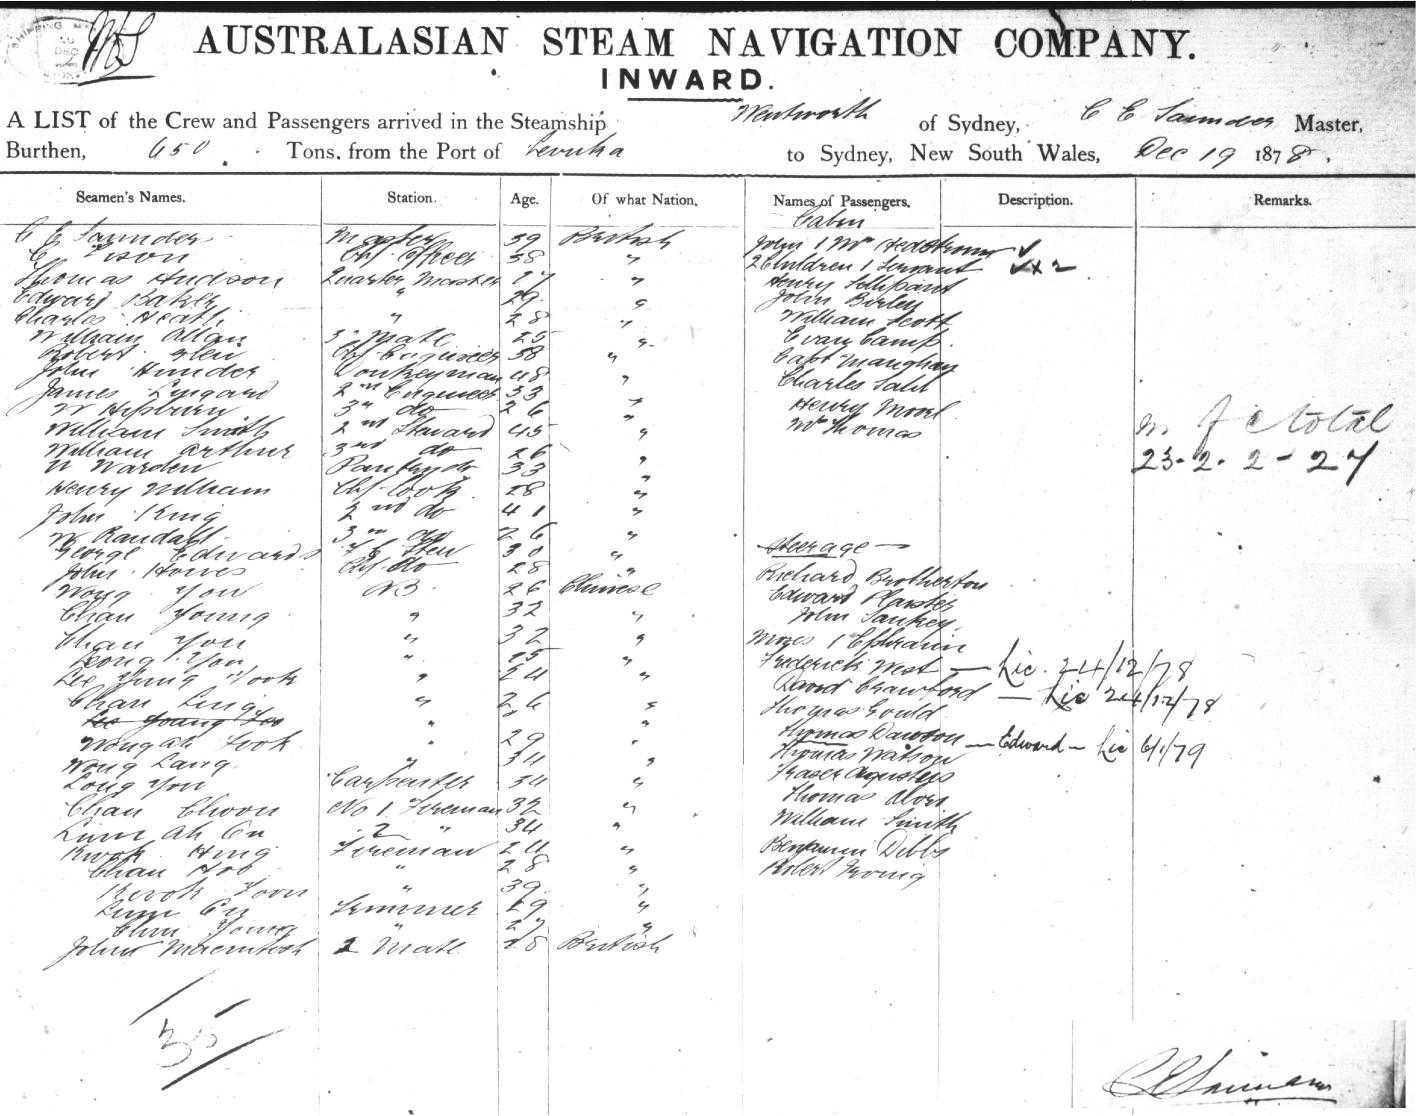 AUSTRALASIAN STEAM NAVIGATION COMPANY.
INWARD.
A LIST of the Crew and Passengers arrived in the Steamship Wentworth of Sydney, C E Saunders Master,
Burthen, 650 Tons, from the Port of Levuka to Sydney, New South Wales, Dec 19 1878.
Seamen's Names. Station. Age. Of what Nation. Names of Passengers. Description. Remarks.
Cabin
C E Saunders Master 39 British John 1 Mrs Hedstrom
C Ch Officer 38 " 2 Children 1 Servant
Thomas Hudson Quarter Master 27 " Henry
Edward Baker " 29 " John Birley
Charles Heath " 28 " William Scott
William Allan 3 Mate 25 " Evan Camp
Robert Glen Chf Engineer 38 " Capt
John Hunder Donkeyman 48 " Charles Sahl
James Lingard 2nd Engineer 33 " Henry Moore
W Hepburn 3rd do 26 " Mr Thomas
William Smith 2nd Steward 45 " m f c total
William Arthur 3rd do 26 "
W Warden Pantry do 33 " 23 - 2 - 2 - 27
Henry William Chf Cook 28 "
John King 2nd do 41 "
W Randall 3rd do 26 "
George Edwards Stew 30 " Steerage
John Howes do 28 "
Wong You AB 26 Chinese Richard Brotherton
Chan Young " 32 " Edward
John Sankey
Chan You " 32 " Moses 1 Ephraim
Leong You " 25 " Frederick West — Lic. 24/12/78
Lee Yung Fook " 24 " David Crawford — Lic 24/12/78
Chan Ling " 26 " Thomas Gould
Lee Young " " Thomas Dawson
Wong Ah Fook " 29 " Thomas Watson — Edward — Lic 6/1/79
Wong Lang " 34 " Fraser
Long You Carpenter 34 " Thomas
Chan Choon No 1 Fireman 32 " William Smith
Lum Ah On 2 " 34 "
Kwok Hing Fireman 24 " Benjamin Dibbs
Chan Hoo " 28 " Robert Irving
Kwok Yoon " 39 "
Lum On Trimmer 29 "
Chun Young " 27 "
John Macintosh 2 Mate 28 British
35